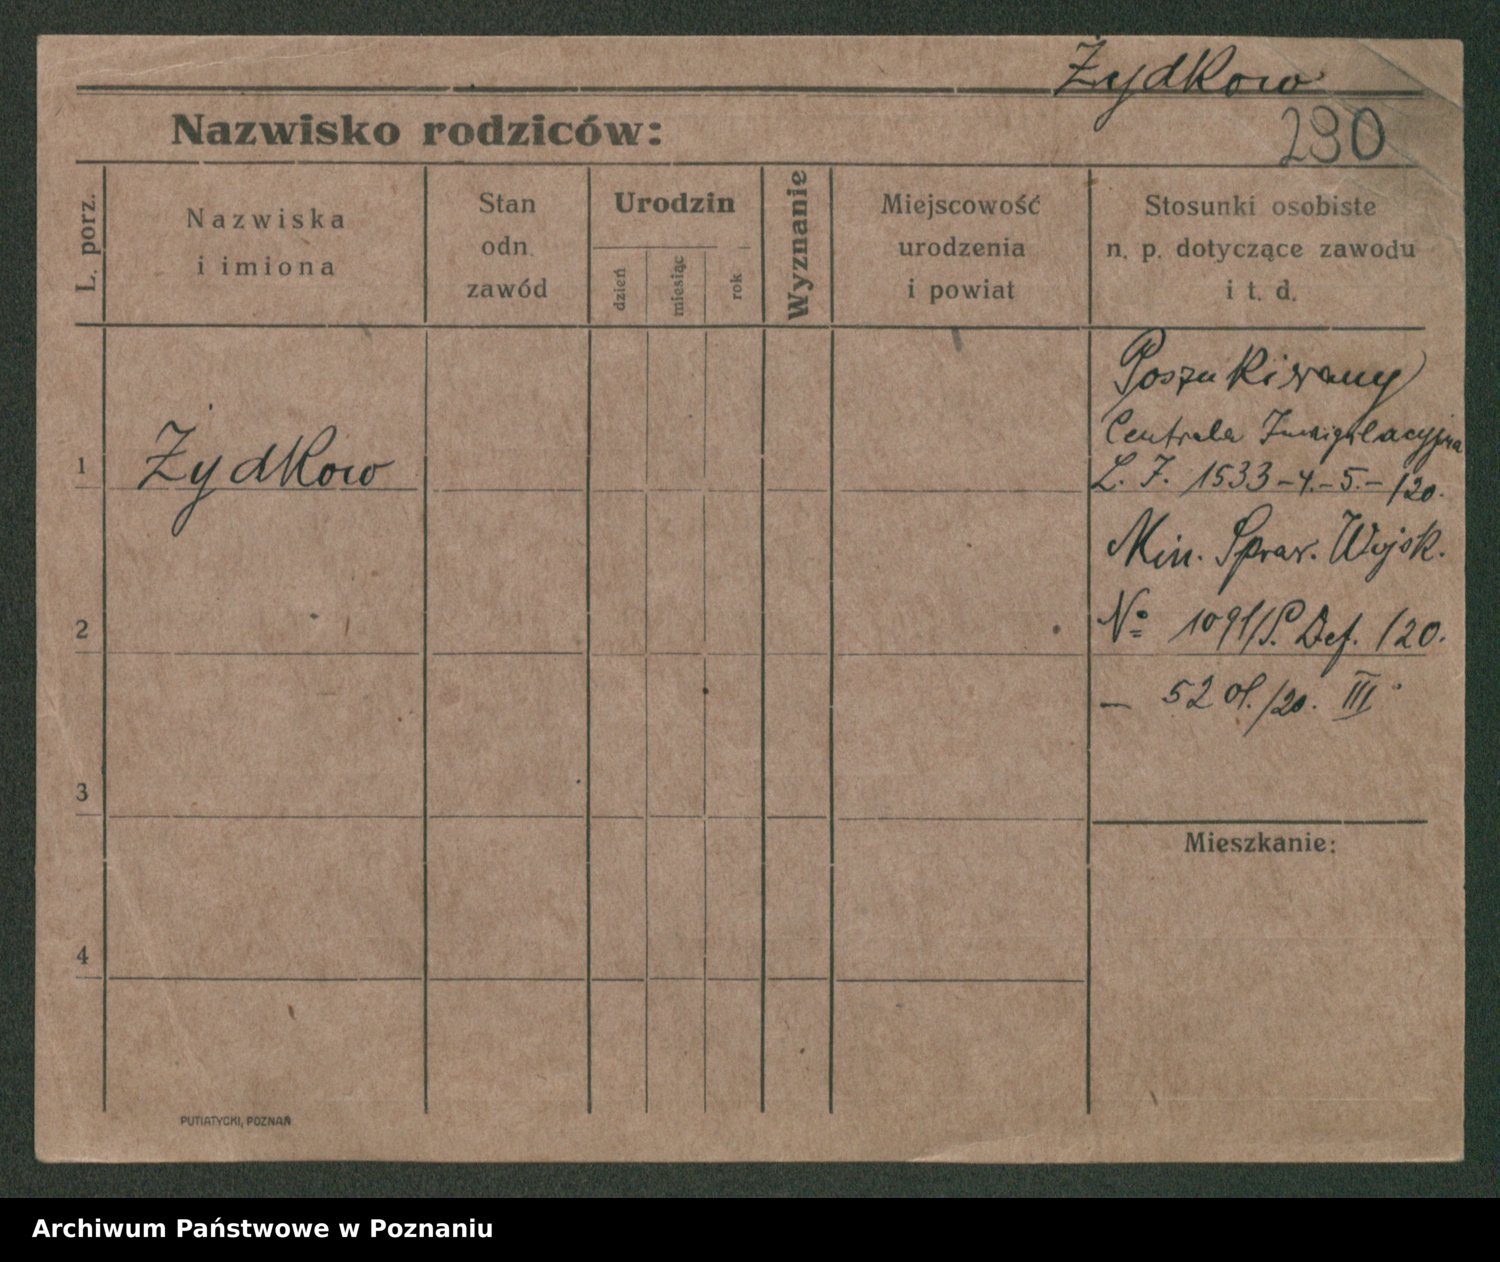 Żydkow
Nazwisko rodziców:
290
L. porz.
Nazwiska
i imiona
Stan
odn.
zawód
Urodzin
dzień
miesiąc
rok
Wyznanie
Miejscowość
urodzenia
i powiat
Stosunki osobiste
n. p. dotyczące zawodu
i t. d.
1
Żydkow
Poszukiwany
Centrala Inwigilacyjna
L. J. 1533-4.-5.-/20.
Min. Spraw. Wojsk.
№ 1091/P. Def. /20.
— 52 of./20. III
2
3
4
Mieszkanie:
PUTIATYCKI, POZNAŃ
Archiwum Państwowe w Poznaniu